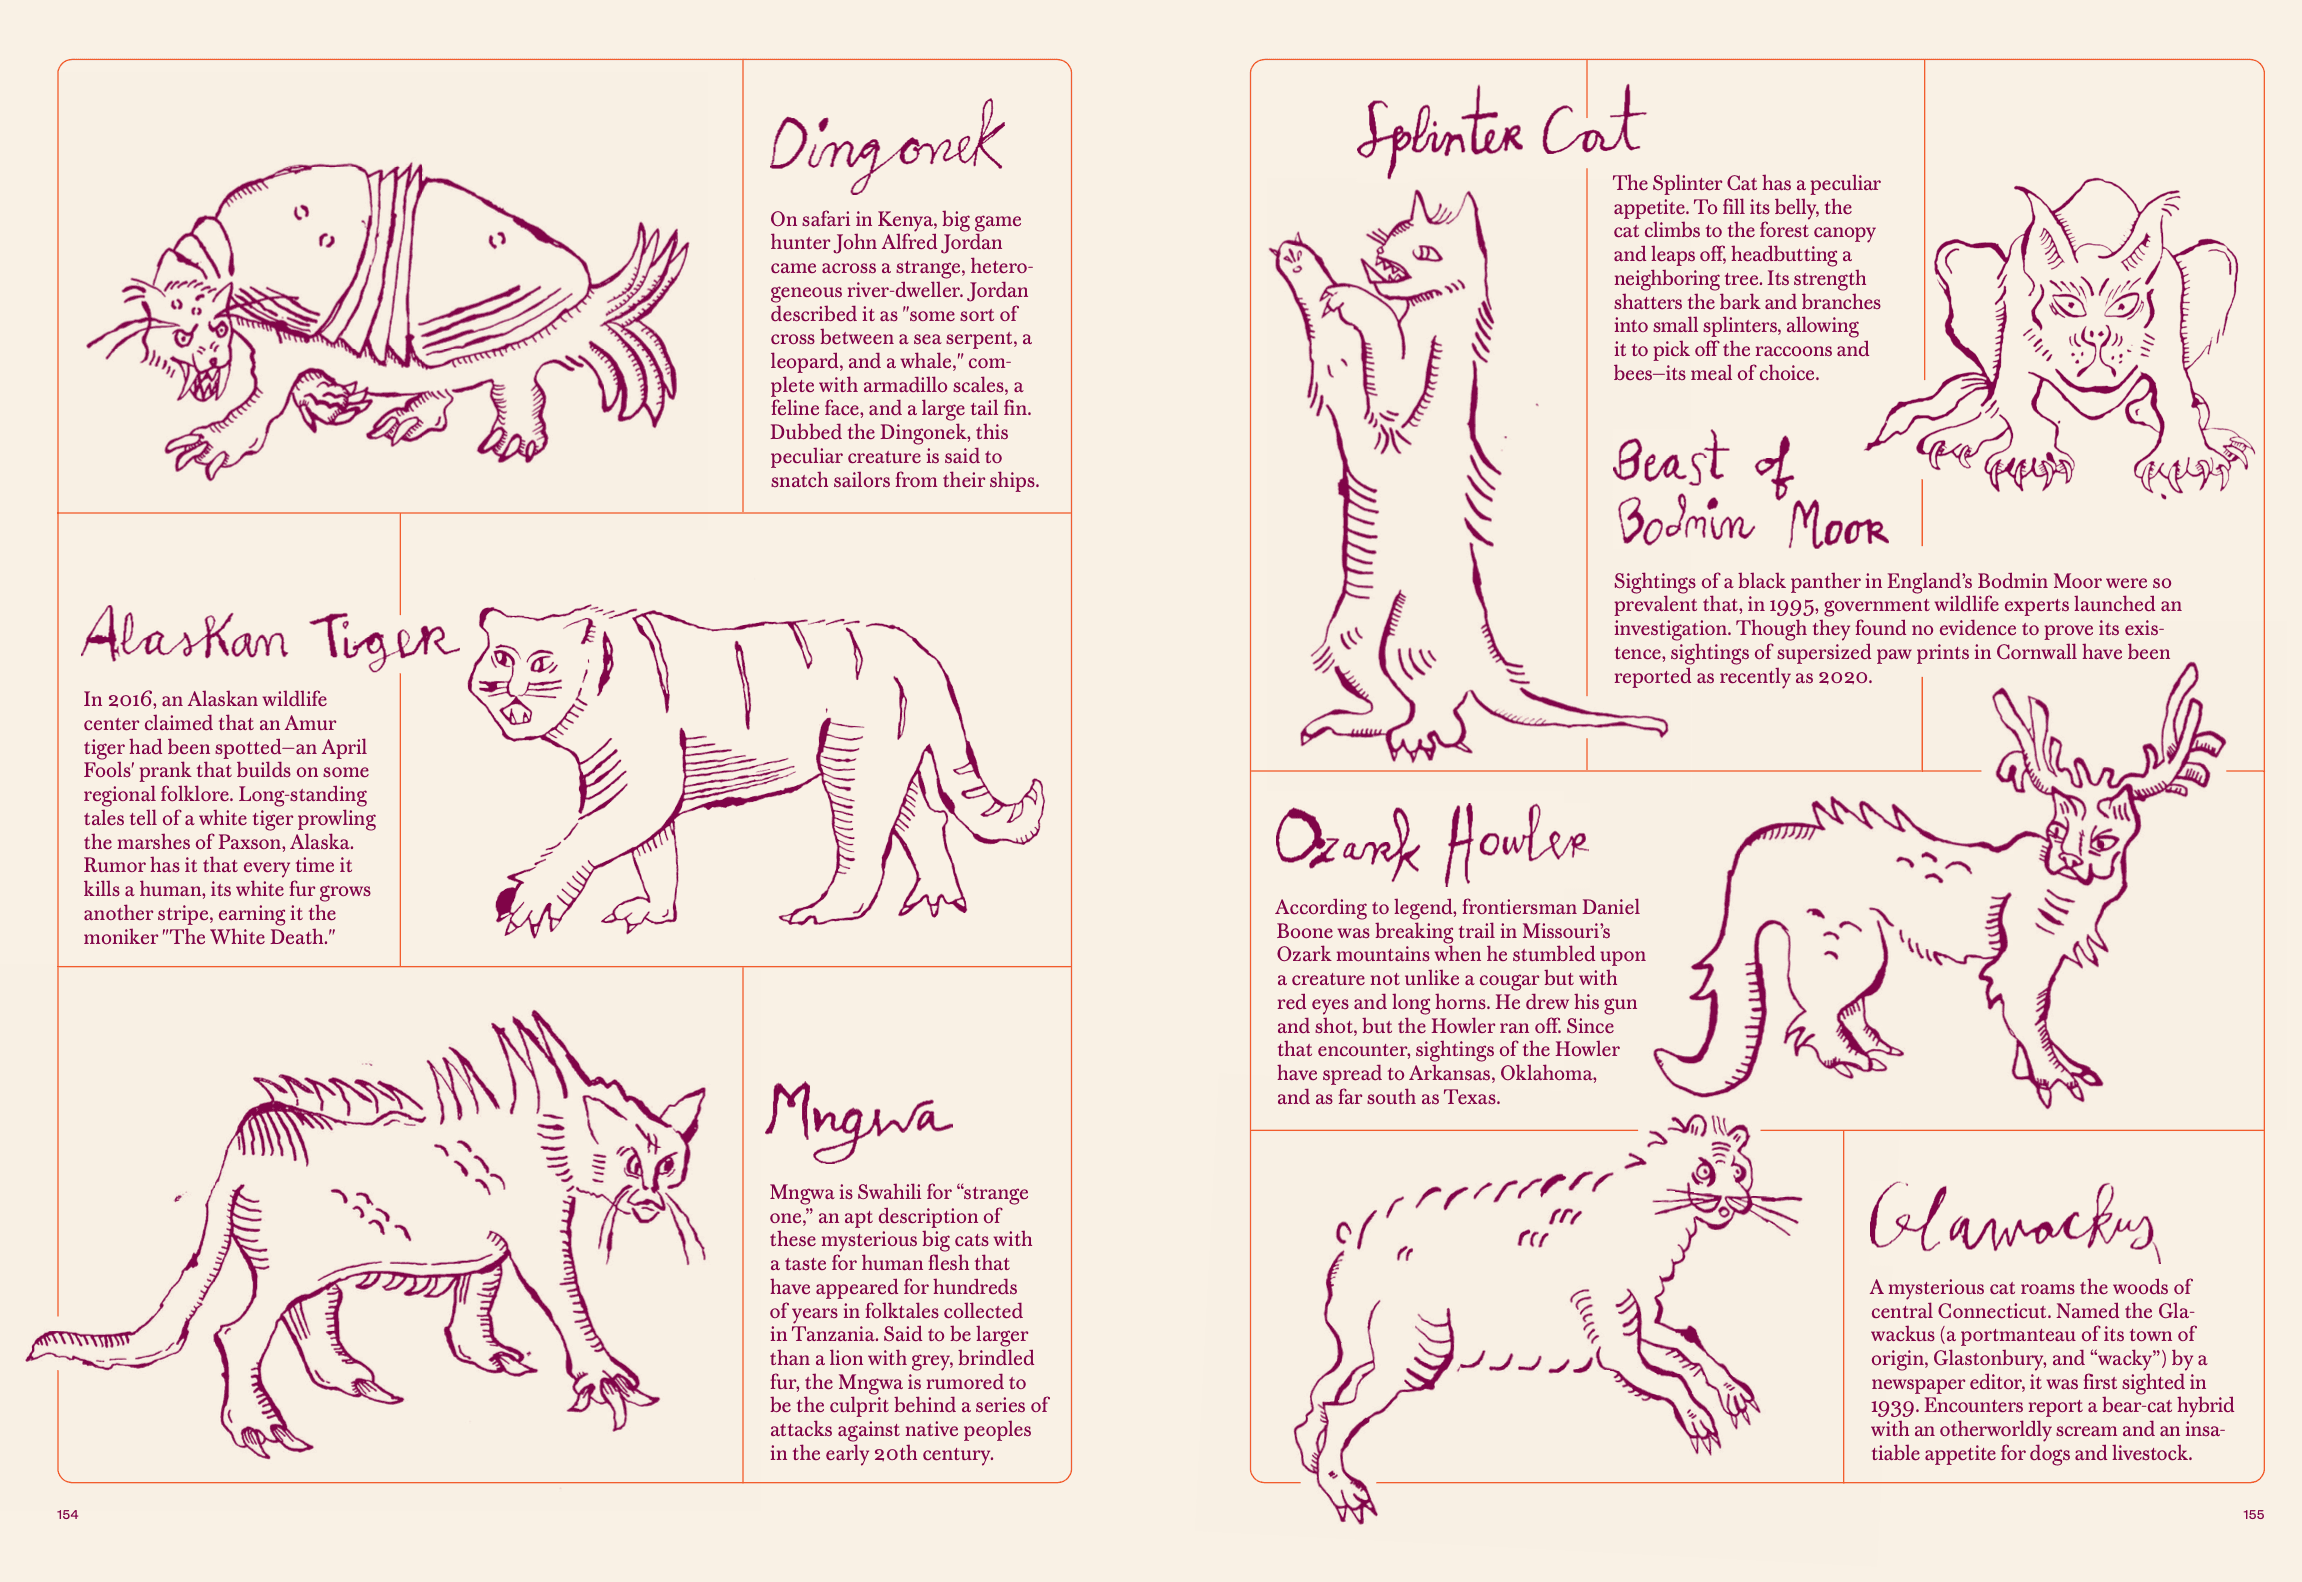 Dingonek
On safari in Kenya, big game
hunter John Alfred Jordan
came across a strange, hetero-
geneous river-dweller. Jordan
described it as "some sort of
cross between a sea serpent, a
leopard, and a whale," com-
plete with armadillo scales, a
feline face, and a large tail fin.
Dubbed the Dingonek, this
peculiar creature is said to
snatch sailors from their ships.
Alaskan Tiger
In 2016, an Alaskan wildlife
center claimed that an Amur
tiger had been spotted—an April
Fools' prank that builds on some
regional folklore. Long-standing
tales tell of a white tiger prowling
the marshes of Paxson, Alaska.
Rumor has it that every time it
kills a human, its white fur grows
another stripe, earning it the
moniker "The White Death."
Mngwa
Mngwa is Swahili for “strange
one,” an apt description of
these mysterious big cats with
a taste for human flesh that
have appeared for hundreds
of years in folktales collected
in Tanzania. Said to be larger
than a lion with grey, brindled
fur, the Mngwa is rumored to
be the culprit behind a series of
attacks against native peoples
in the early 20th century.
154
Splinter Cat
The Splinter Cat has a peculiar
appetite. To fill its belly, the
cat climbs to the forest canopy
and leaps off, headbutting a
neighboring tree. Its strength
shatters the bark and branches
into small splinters, allowing
it to pick off the raccoons and
bees—its meal of choice.
Beast of
Bodmin Moor
Sightings of a black panther in England’s Bodmin Moor were so
prevalent that, in 1995, government wildlife experts launched an
investigation. Though they found no evidence to prove its exis-
tence, sightings of supersized paw prints in Cornwall have been
reported as recently as 2020.
Ozark Howler
According to legend, frontiersman Daniel
Boone was breaking trail in Missouri’s
Ozark mountains when he stumbled upon
a creature not unlike a cougar but with
red eyes and long horns. He drew his gun
and shot, but the Howler ran off. Since
that encounter, sightings of the Howler
have spread to Arkansas, Oklahoma,
and as far south as Texas.
Glawackus
A mysterious cat roams the woods of
central Connecticut. Named the Gla-
wackus (a portmanteau of its town of
origin, Glastonbury, and “wacky”) by a
newspaper editor, it was first sighted in
1939. Encounters report a bear-cat hybrid
with an otherworldly scream and an insa-
tiable appetite for dogs and livestock.
155